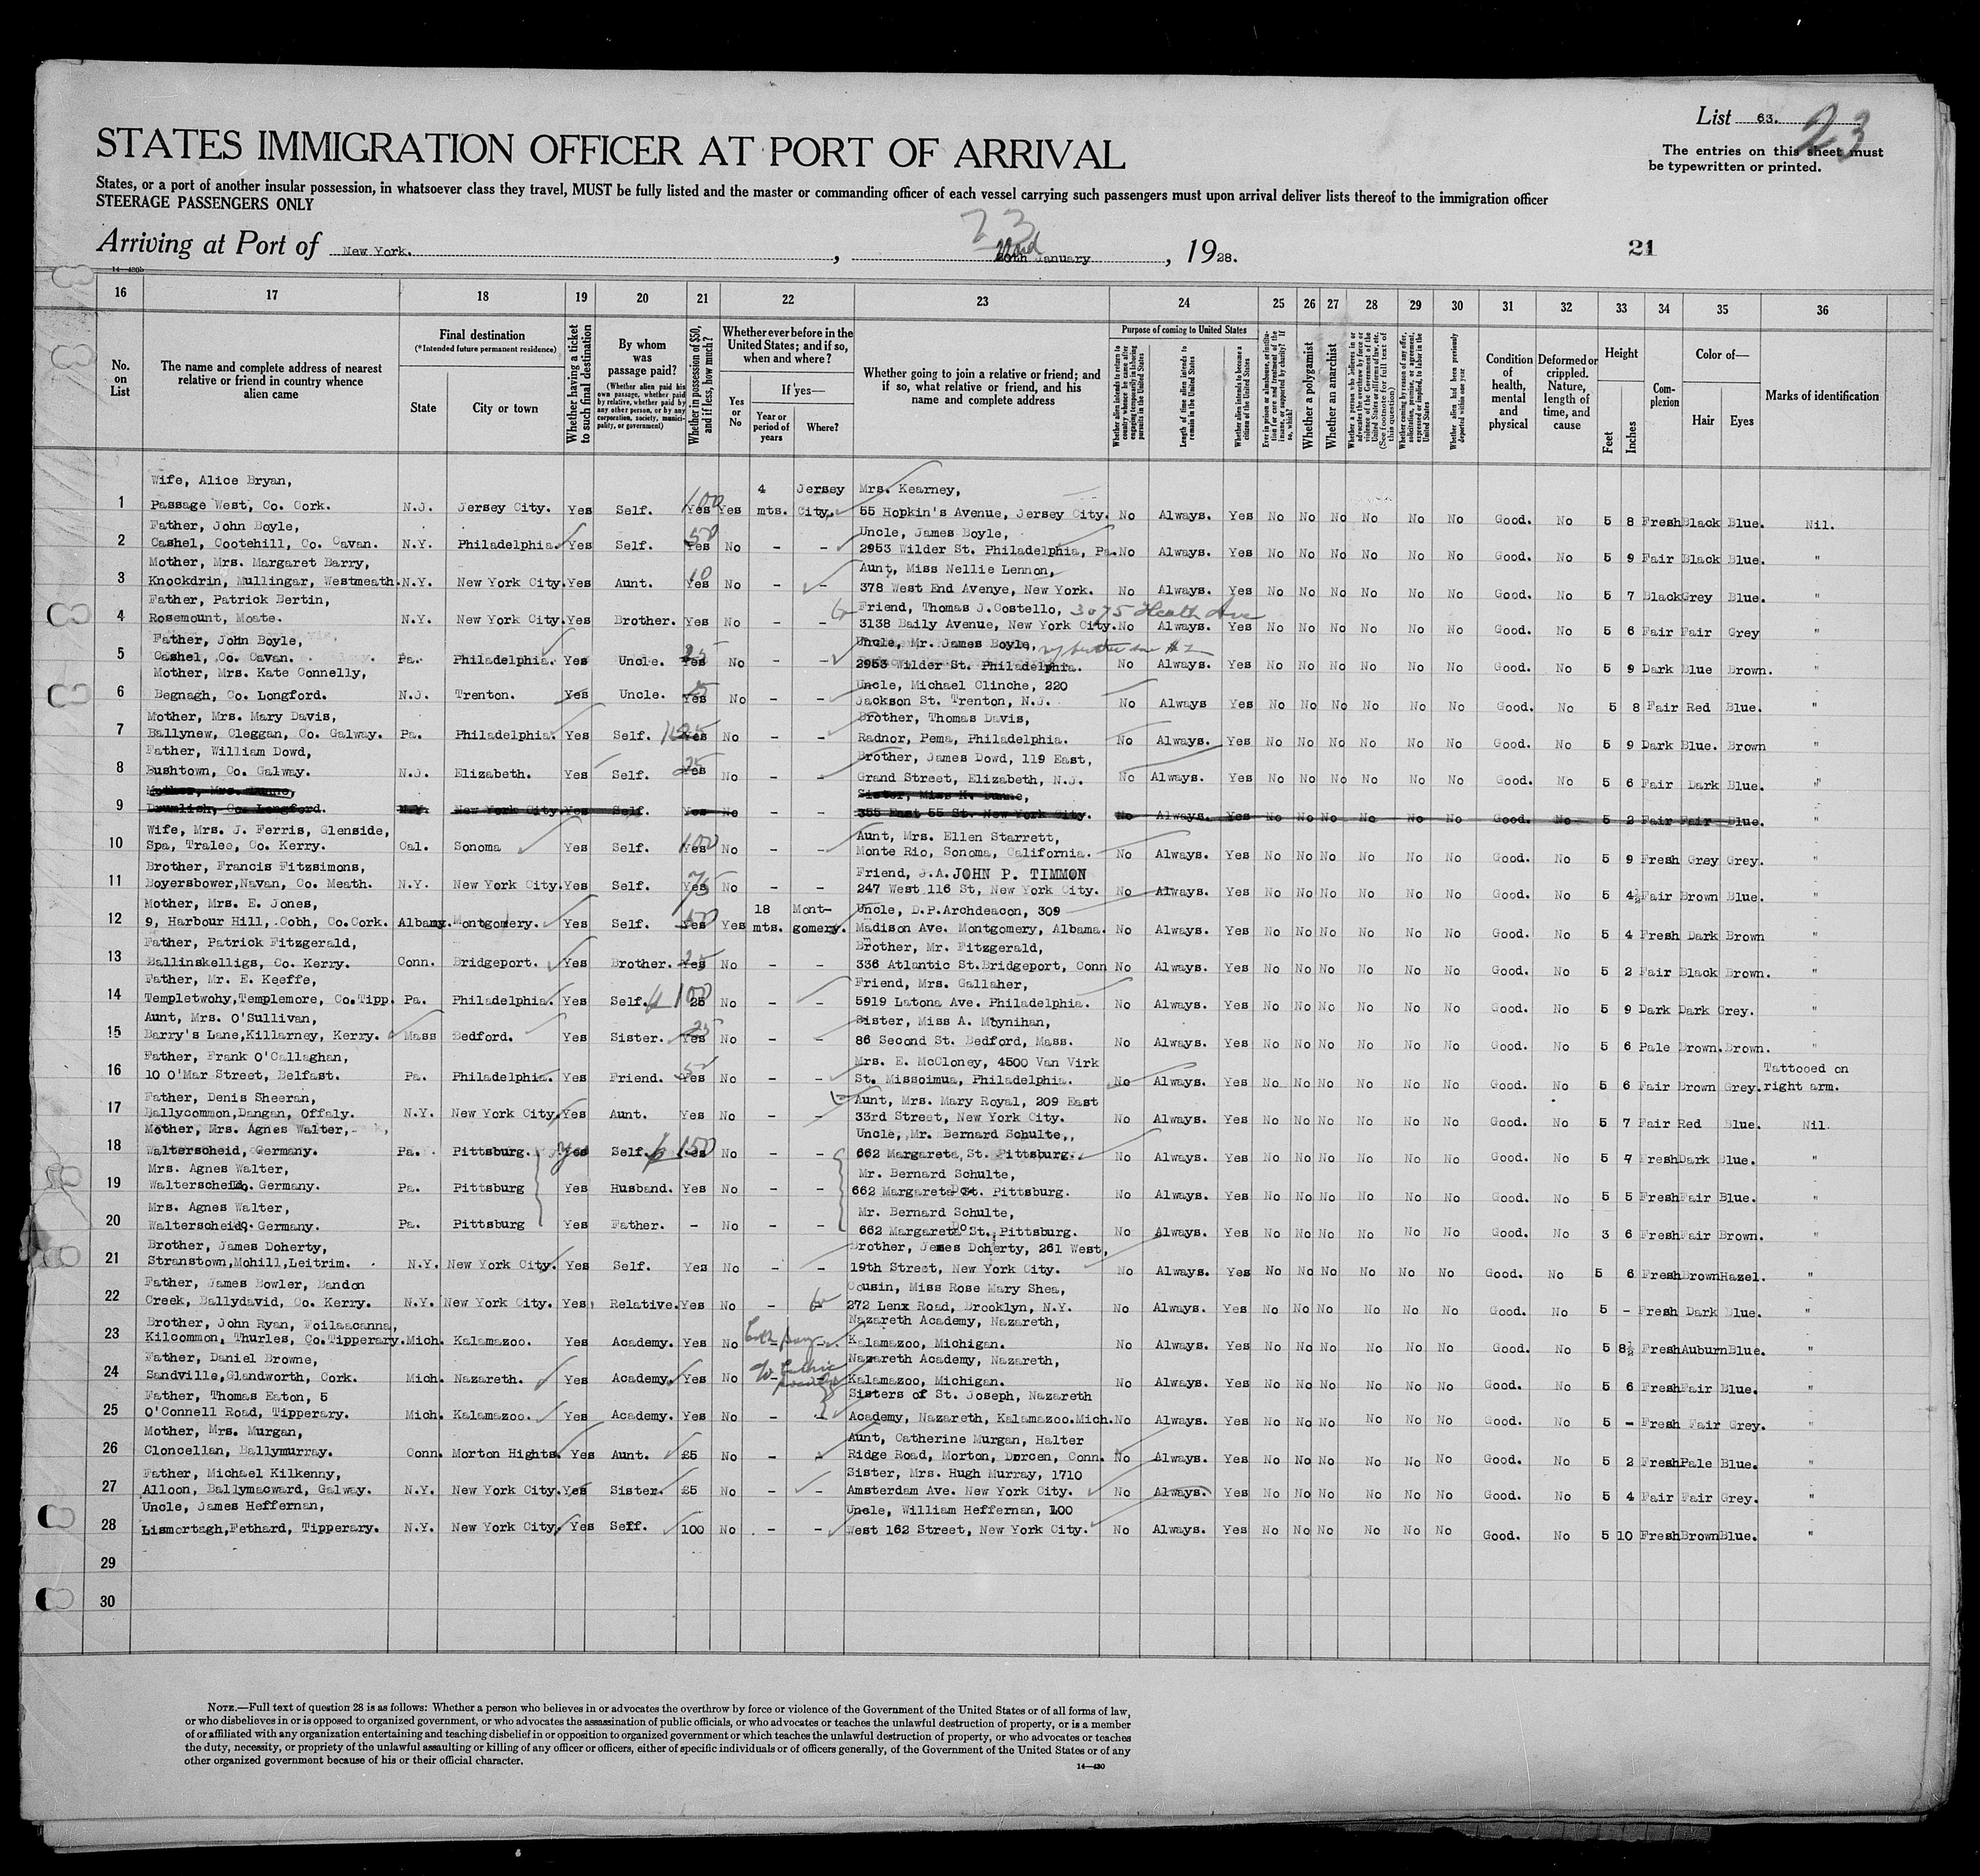 List 63. 23
The entries on this sheet must
be typewritten or printed.
STATES IMMIGRATION OFFICER AT PORT OF ARRIVAL
States, or a port of another insular possession, in whatsoever class they travel, MUST be fully listed and the master or commanding officer of each vessel carrying such passengers must upon arrival deliver lists thereof to the immigration officer
STEERAGE PASSENGERS ONLY
23
Arriving at Port of New York. , January , 1928. 21
14—430b
16 17 18 19 20 21 22 23 24 25 26 27 28 29 30 31 32 33 34 35 36
No. on List
The name and complete address of nearest relative or friend in country whence alien came
Final destination
(*Intended future permanent residence)
State
City or town
Whether having a ticket to such final destination
By whom was passage paid?
(Whether alien paid his own passage, whether paid by relative, whether paid by any other person, or by any corporation, society, municipality, or government)
Whether in possession of $50, and if less, how much?
Whether ever before in the United States; and if so, when and where?
Yes or No
If yes—
Year or period of years
Where?
Whether going to join a relative or friend; and if so, what relative or friend, and his name and complete address
Purpose of coming to United States
Whether alien intends to return to country whence he came after engaging temporarily in laboring pursuits in the United States
Length of time alien intends to remain in the United States
Whether alien intends to become a citizen of the United States
Ever in prison or almshouse, or institution for care and treatment of the insane, or supported by charity? If so, which?
Whether a polygamist
Whether an anarchist
Whether a person who believes in or advocates the overthrow by force or violence of the Government of the United States or all forms of law, etc. (See footnote for full text of this question)
Whether coming by reason of any offer, solicitation, promise, or agreement, expressed or implied, to labor in the United States
Whether alien had been previously deported within one year
Condition of health, mental and physical
Deformed or crippled. Nature, length of time, and cause
Height
Feet
Inches
Complexion
Color of—
Hair
Eyes
Marks of identification
Wife, Alice Bryan, 4 Jersey Mrs. Kearney, 100
1 Passage West, Co. Cork. N.J. Jersey City. Yes Self. Yes Yes mts. City. 55 Hopkin's Avenue, Jersey City. No Always. Yes No No No No No No Good. No 5 8 Fresh Black Blue. Nil.
Father, John Boyle, 50 Uncle, James Boyle,
2 Cashel, Cootehill, Co. Cavan. N.Y. Philadelphia. Yes Self. Yes No - - 2953 Wilder St. Philadelphia, Pa. No Always. Yes No No No No No No Good. No 5 9 Fair Black Blue. "
Mother, Mrs. Margaret Barry, 10 Aunt, Miss Nellie Lennon,
3 Knockdrin, Mullingar, Westmeath. N.Y. New York City. Yes Aunt. Yes No - - 378 West End Avenye, New York. No Always. Yes No No No No No No Good. No 5 7 Black Grey Blue. "
Father, Patrick Bertin, Friend, Thomas J. Costello, 3075 Heath Ave
4 Rosemount, Moate. N.Y. New York City. Yes Brother. Yes No - - 3138 Baily Avenue, New York City. No Always. Yes No No No No No No Good. No 5 6 Fair Fair Grey "
Father, John Boyle, 25 Uncle, Mr. James Boyle,
5 Cashel, Co. Cavan. Pa. Philadelphia. Yes Uncle. Yes No - - 2953 Wilder St. Philadelphia. No Always. Yes No No No No No No Good. No 5 9 Dark Blue Brown. "
Mother, Mrs. Kate Connelly, Uncle, Michael Clinche, 220
6 Begnagh, Co. Longford. N.J. Trenton. Yes Uncle. Yes No - - Jackson St. Trenton, N.J. No Always Yes No No No No No No Good. No 5 8 Fair Red Blue. "
Mother, Mrs. Mary Davis, Brother, Thomas Davis,
7 Ballynew, Cleggan, Co. Galway. Pa. Philadelphia. Yes Self. Yes No - - Radnor, Pema, Philadelphia. No Always. Yes No No No No No No Good. No 5 9 Dark Blue. Brown "
Father, William Dowd, 25 Brother, James Dowd, 119 East,
8 Bushtown, Co. Galway. N.J. Elizabeth. Yes Self. Yes No - - Grand Street, Elizabeth, N.J. No Always. Yes No No No No No No Good. No 5 6 Fair Dark Blue. "
Mother, Mrs. Dunne, Sister, Miss K. Dunne,
9 Drumlish, Co. Longford. N.Y. New York City. Yes Self. Yes No 355 East 55 St. New York City. No Always. Yes No No No No No No Good. No 5 2 Fair Fair Blue. "
Wife, Mrs. J. Ferris, Glenside, 100 Aunt, Mrs. Ellen Starrett,
10 Spa, Tralee, Co. Kerry. Cal. Sonoma Yes Self. Yes No - - Monte Rio, Sonoma, California. No Always. Yes No No No No No No Good. No 5 9 Fresh Grey Grey. "
Brother, Francis Fitzsimons, 75 Friend, J.A. JOHN P. TIMMON
11 Boyersbower, Navan, Co. Meath. N.Y. New York City. Yes Self. Yes No - - 247 West 116 St, New York City. No Always. Yes No No No No No No Good. No 5 4½ Fair Brown Blue. "
Mother, Mrs. E. Jones, 18 Mont- Uncle, D.P. Archdeacon, 309
12 9, Harbour Hill, Cobh, Co. Cork. Albamy. Montgomery. Yes Self. Yes Yes mts. gomery. Madison Ave. Montgomery, Albama. No Always. Yes No No No No No No Good. No 5 4 Fresh Dark Brown "
Father, Patrick Fitzgerald, Brother, Mr. Fitzgerald,
13 Ballinskelligs, Co. Kerry. Conn. Bridgeport. Yes Brother. Yes No - - 336 Atlantic St. Bridgeport, Conn No Always. Yes No No No No No No Good. No 5 2 Fair Black Brown. "
Father, Mr. E. Keeffe, 100 Friend, Mrs. Gallaher,
14 Templetwohy, Templemore, Co. Tipp. Pa. Philadelphia. Yes Self. 25 No - - 5919 Latona Ave. Philadelphia. No Always. Yes No No No No No No Good. No 5 9 Dark Dark Grey. "
Aunt, Mrs. O'Sullivan, 25 Sister, Miss A. Moynihan,
15 Barry's Lane, Killarney, Kerry. Mass Bedford. Yes Sister. Yes No - - 86 Second St. Bedford, Mass. No Always. Yes No No No No No No Good. No 5 6 Pale Brown. Brown. "
Father, Frank O'Callaghan, Mrs. E. McCloney, 4500 Van Virk Tattooed on
16 10 O'Mar Street, Belfast. Pa. Philadelphia. Yes Friend. Yes No - - St. Missoimua, Philadelphia. No Always. Yes No No No No No No Good. No 5 6 Fair Brown Grey. right arm.
Father, Denis Sheeran, Aunt, Mrs. Mary Royal, 209 East
17 Ballycommon, Dangan, Offaly. N.Y. New York City. Yes Aunt. Yes No - - 33rd Street, New York City. No Always. Yes No No No No No No Good. No 5 7 Fair Red Blue. Nil.
Mother, Mrs. Agnes Walter, Uncle, Mr. Bernard Schulte,,
18 Walterscheid, Germany. Pa. Pittsburg. Yes Self. 150 Yes No - - 662 Margareta, St. Pittsburg. No Always. Yes No No No No No No Good. No 5 7 Fresh Dark Blue. "
Mrs. Agnes Walter, Mr. Bernard Schulte,
19 Walterscheid, Do. Germany. Pa. Pittsburg Yes Husband. Yes No - - 662 Margareta Do. St. Pittsburg. No Always. Yes No No No No No No Good. No 5 5 Fresh Fair Blue. "
Mrs. Agnes Walter, Mr. Bernard Schulte,
20 Walterscheid, Germany. Pa. Pittsburg Yes Father. - No - - 662 Margareta Do St. Pittsburg. No Always. Yes No No No No No No Good. No 3 6 Fresh Fair Brown. "
Brother, James Doherty, Brother, James Doherty, 261 West,
21 Stranstown, Mohill, Leitrim. N.Y. New York City. Yes Self. Yes No - - 19th Street, New York City. No Always. Yes No No No No No No Good. No 5 6 Fresh Brown Hazel. "
Father, James Bowler, Bandon Cousin, Miss Rose Mary Shea,
22 Creek, Ballydavid, Co. Kerry. N.Y. New York City. Yes Relative. Yes No - - 272 Lenx Road, Brooklyn, N.Y. No Always. Yes No No No No No No Good. No 5 - Fresh Dark Blue. "
Brother, John Ryan, Foilaacanna, Nazareth Academy, Nazareth,
23 Kilcommon, Thurles, Co. Tipperary. Mich. Kalamazoo. Yes Academy. Yes No - - Kalamazoo, Michigan. No Always. Yes No No No No No No Good. No 5 8½ Fresh Auburn Blue. "
Father, Daniel Browne, Nazareth Academy, Nazareth,
24 Sandville, Glandworth, Cork. Mich. Nazareth. Yes Academy. Yes No - Kalamazoo, Michigan. No Always. Yes No No No No No No Good. No 5 6 Fresh Fair Blue. "
Father, Thomas Eaton, 5 Sisters of St. Joseph, Nazareth
25 O'Connell Road, Tipperary. Mich. Kalamazoo. Yes Academy. Yes No - - Academy, Nazareth, Kalamazoo. Mich. No Always. Yes No No No No No No Good. No 5 - Fresh Fair Grey. "
Mother, Mrs. Murgan, Aunt, Catherine Murgan, Halter
26 Cloncellan, Ballymurray. Conn. Morton Hights. Yes Aunt. £5 No - - Ridge Road, Morton, Dorcen, Conn. No Always. Yes No No No No No No Good. No 5 2 Fresh Pale Blue. "
Father, Michael Kilkenny, Sister, Mrs. Hugh Murray, 1710
27 Alloon, Ballymacward, Galway. N.Y. New York City. Yes Sister. £5 No - - Amsterdam Ave. New York City. No Always. Yes No No No No No No Good. No 5 4 Fair Fair Grey. "
Uncle, James Heffernan, Uncle, William Heffernan, 100
28 Lismortagh, Fethard, Tipperary. N.Y. New York City. Yes Self. 100 No - - West 162 Street, New York City. No Always. Yes No No No No No No Good. No 5 10 Fresh Brown Blue. "
29
30
NOTE.—Full text of question 28 is as follows: Whether a person who believes in or advocates the overthrow by force or violence of the Government of the United States or of all forms of law,
or who disbelieves in or is opposed to organized government, or who advocates the assassination of public officials, or who advocates or teaches the unlawful destruction of property, or is a member
of or affiliated with any organization entertaining and teaching disbelief in or opposition to organized government or which teaches the unlawful destruction of property, or who advocates or teaches
the duty, necessity, or propriety of the unlawful assaulting or killing of any officer or officers, either of specific individuals or of officers generally, of the Government of the United States or of any
other organized government because of his or their official character.
14—430